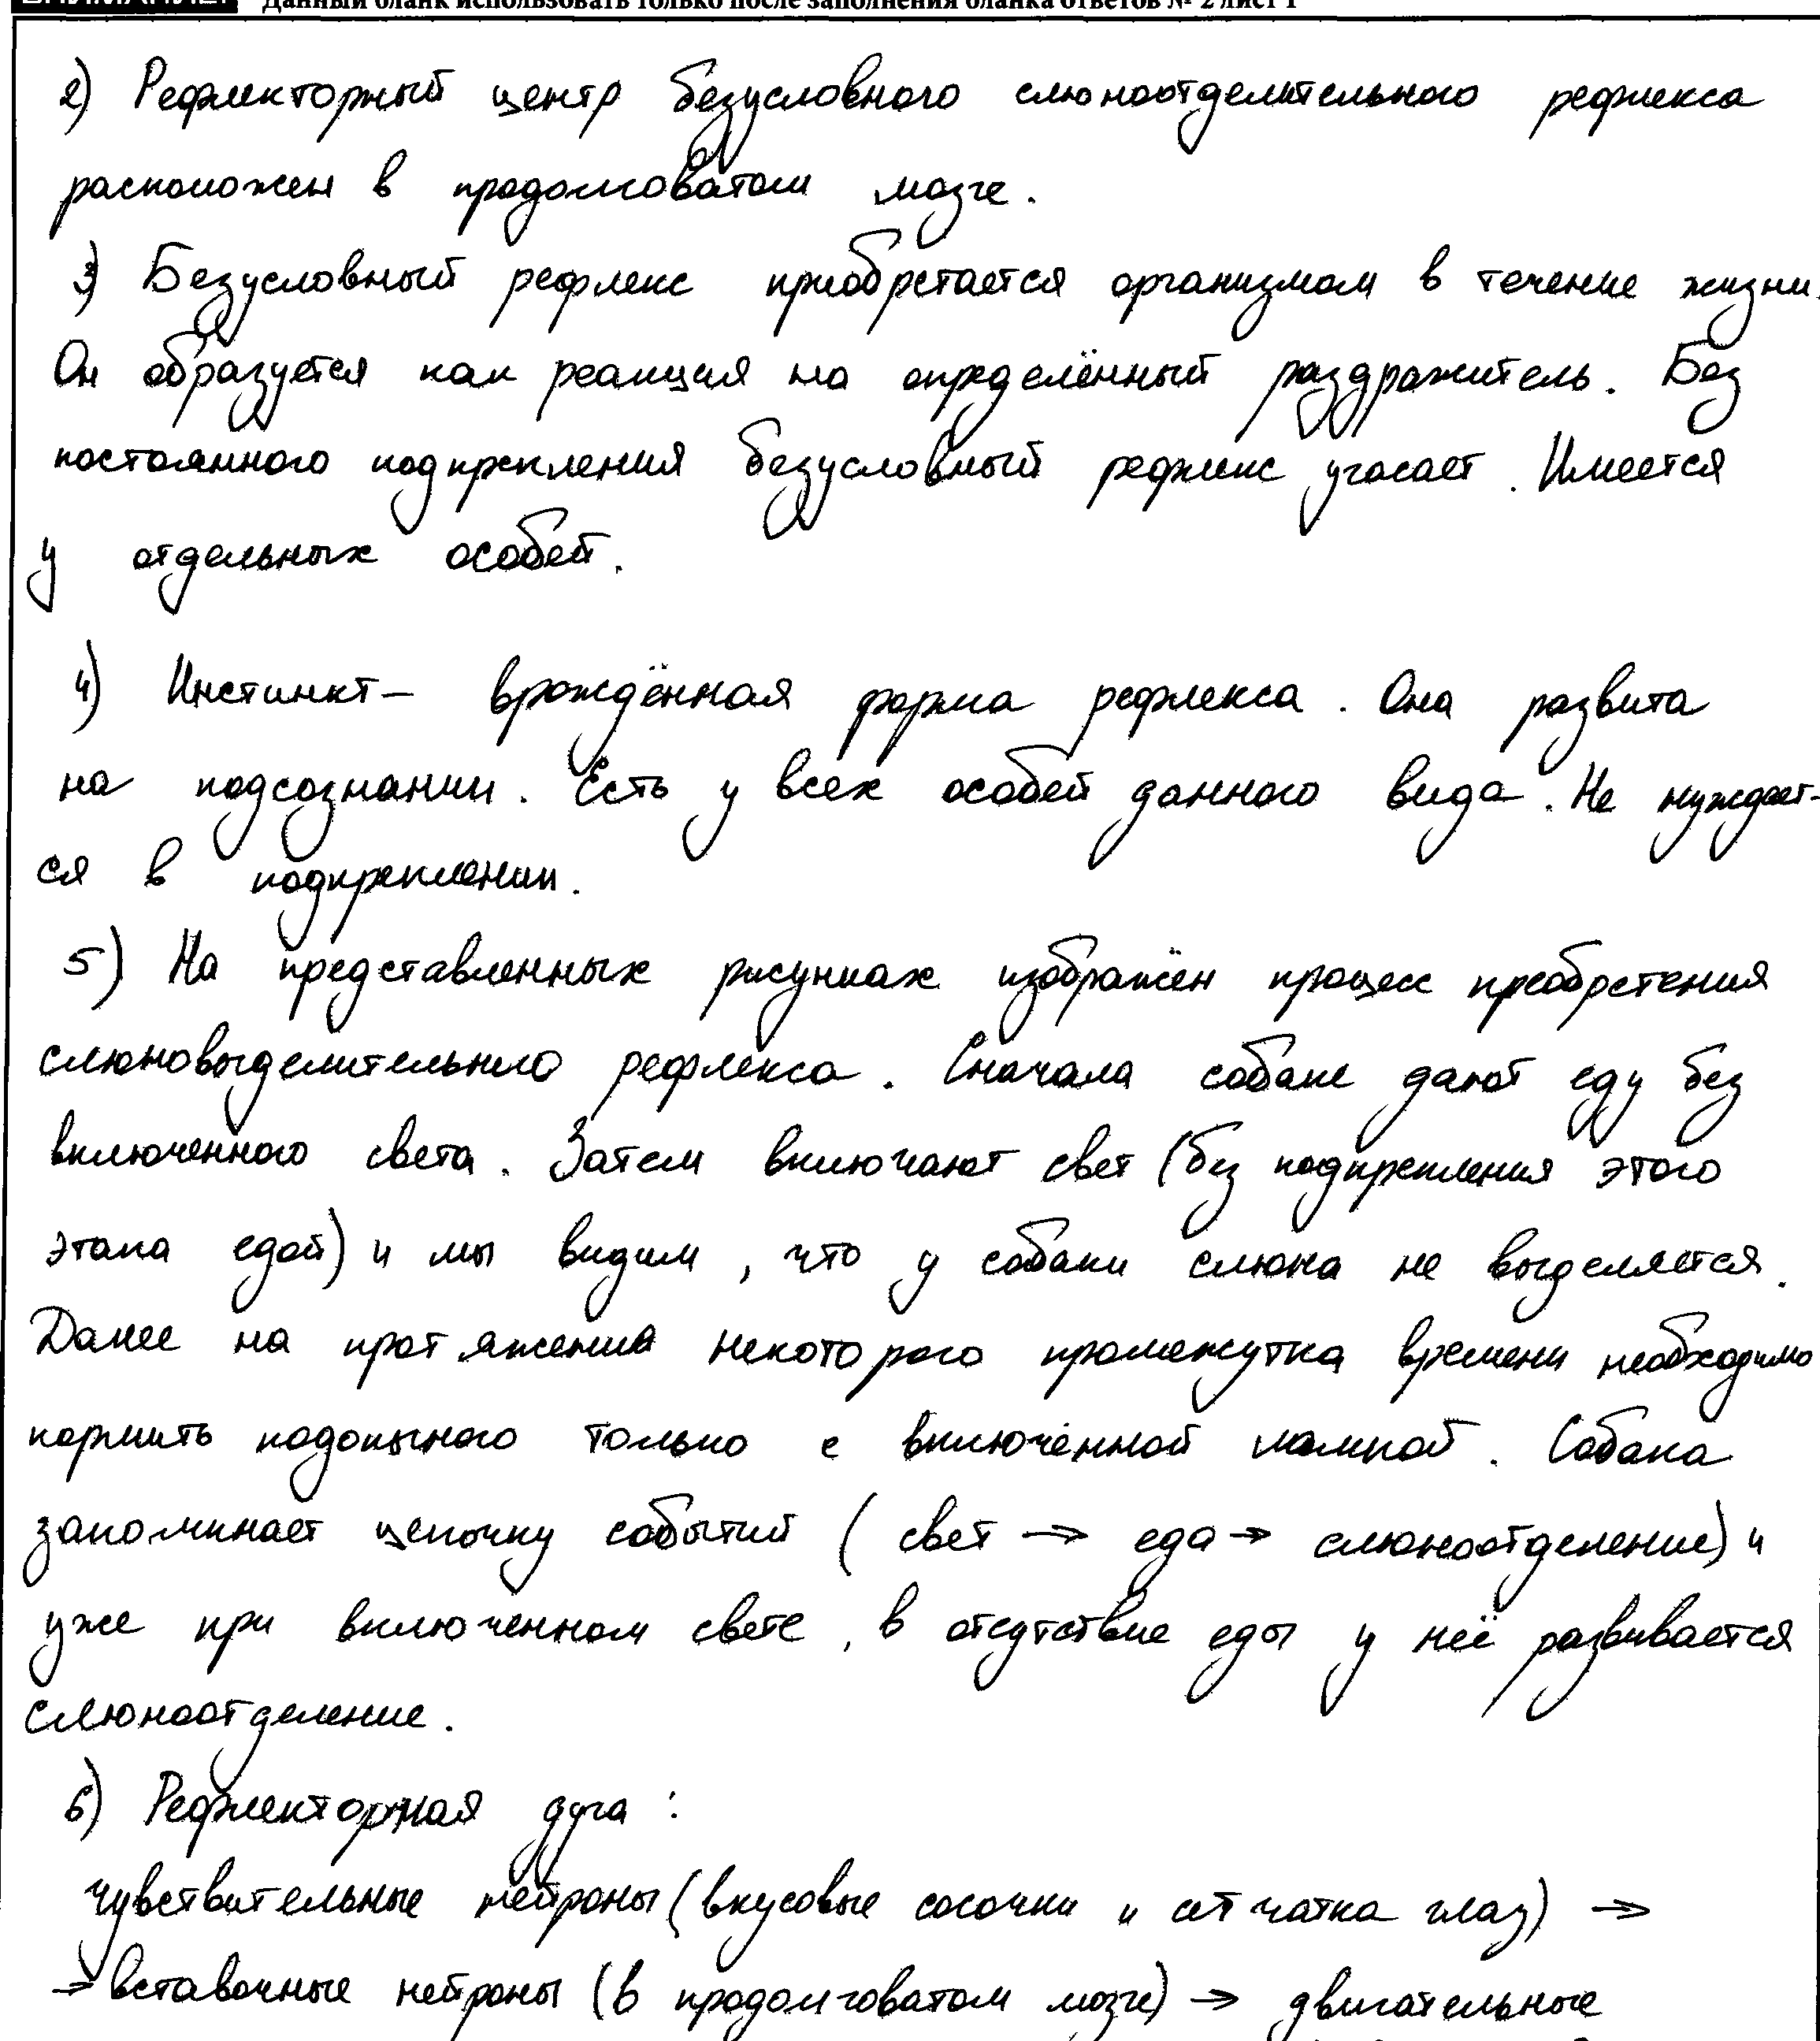 Данный бланк использовать только после заполнения бланка ответов № 2 лист 1
2) Рефлекторный центр безусловного слюноотделительного рефлекса
расположен в продолговатом мозге.
3) Безусловный рефлекс приобретается организмом в течение жизни.
Он образуется как реакция на определённый раздражитель. Без
постоянного подкрепления безусловный рефлекс угасает. Имеется
у отдельных особей.
4) Инстинкт – врождённая форма рефлекса. Она развита
на подсознании. Есть у всех особей данного вида. Не нуждает-
ся в подкреплении.
5) На представленных рисунках изображён процесс преобретения
слюновыделительного рефлекса. Сначала собаке дают еду без
включенного света. Затем включают свет (без подкрепления этого
этапа едой) и мы видим, что у собаки слюна не выделяется.
Далее на протяжении некоторого промежутка времени необходимо
кормить подопычного только с включённой лампой. Собака
запоминает цепочку событий (свет → еда → слюноотделение) и
уже при включенном свете, в отсутствие еды у неё развивается
слюноотделение.
6) Рефлекторная дуга:
чувствительные нейроны (вкусовые сосочки и сетчатка глаз) →
→ вставочные нейроны (в продолговатом мозге) → двигательные